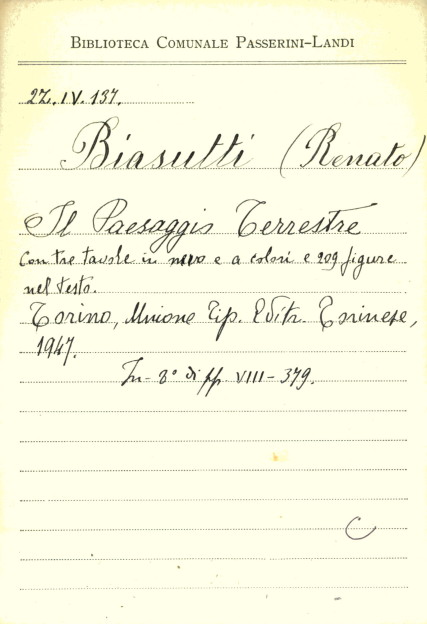 BIBLIOTECA COMUNALE PASSERINI-LANDI
2Z.IV.137.
Biasutti (Renato)
Il Paesaggio Terrestre
Con tre tavole in nero e a colori e 209 figure
nel testo.
Torino, Unione Tip. Editr. Torinese,
1947.
In-8° di pp VIII-379.
C